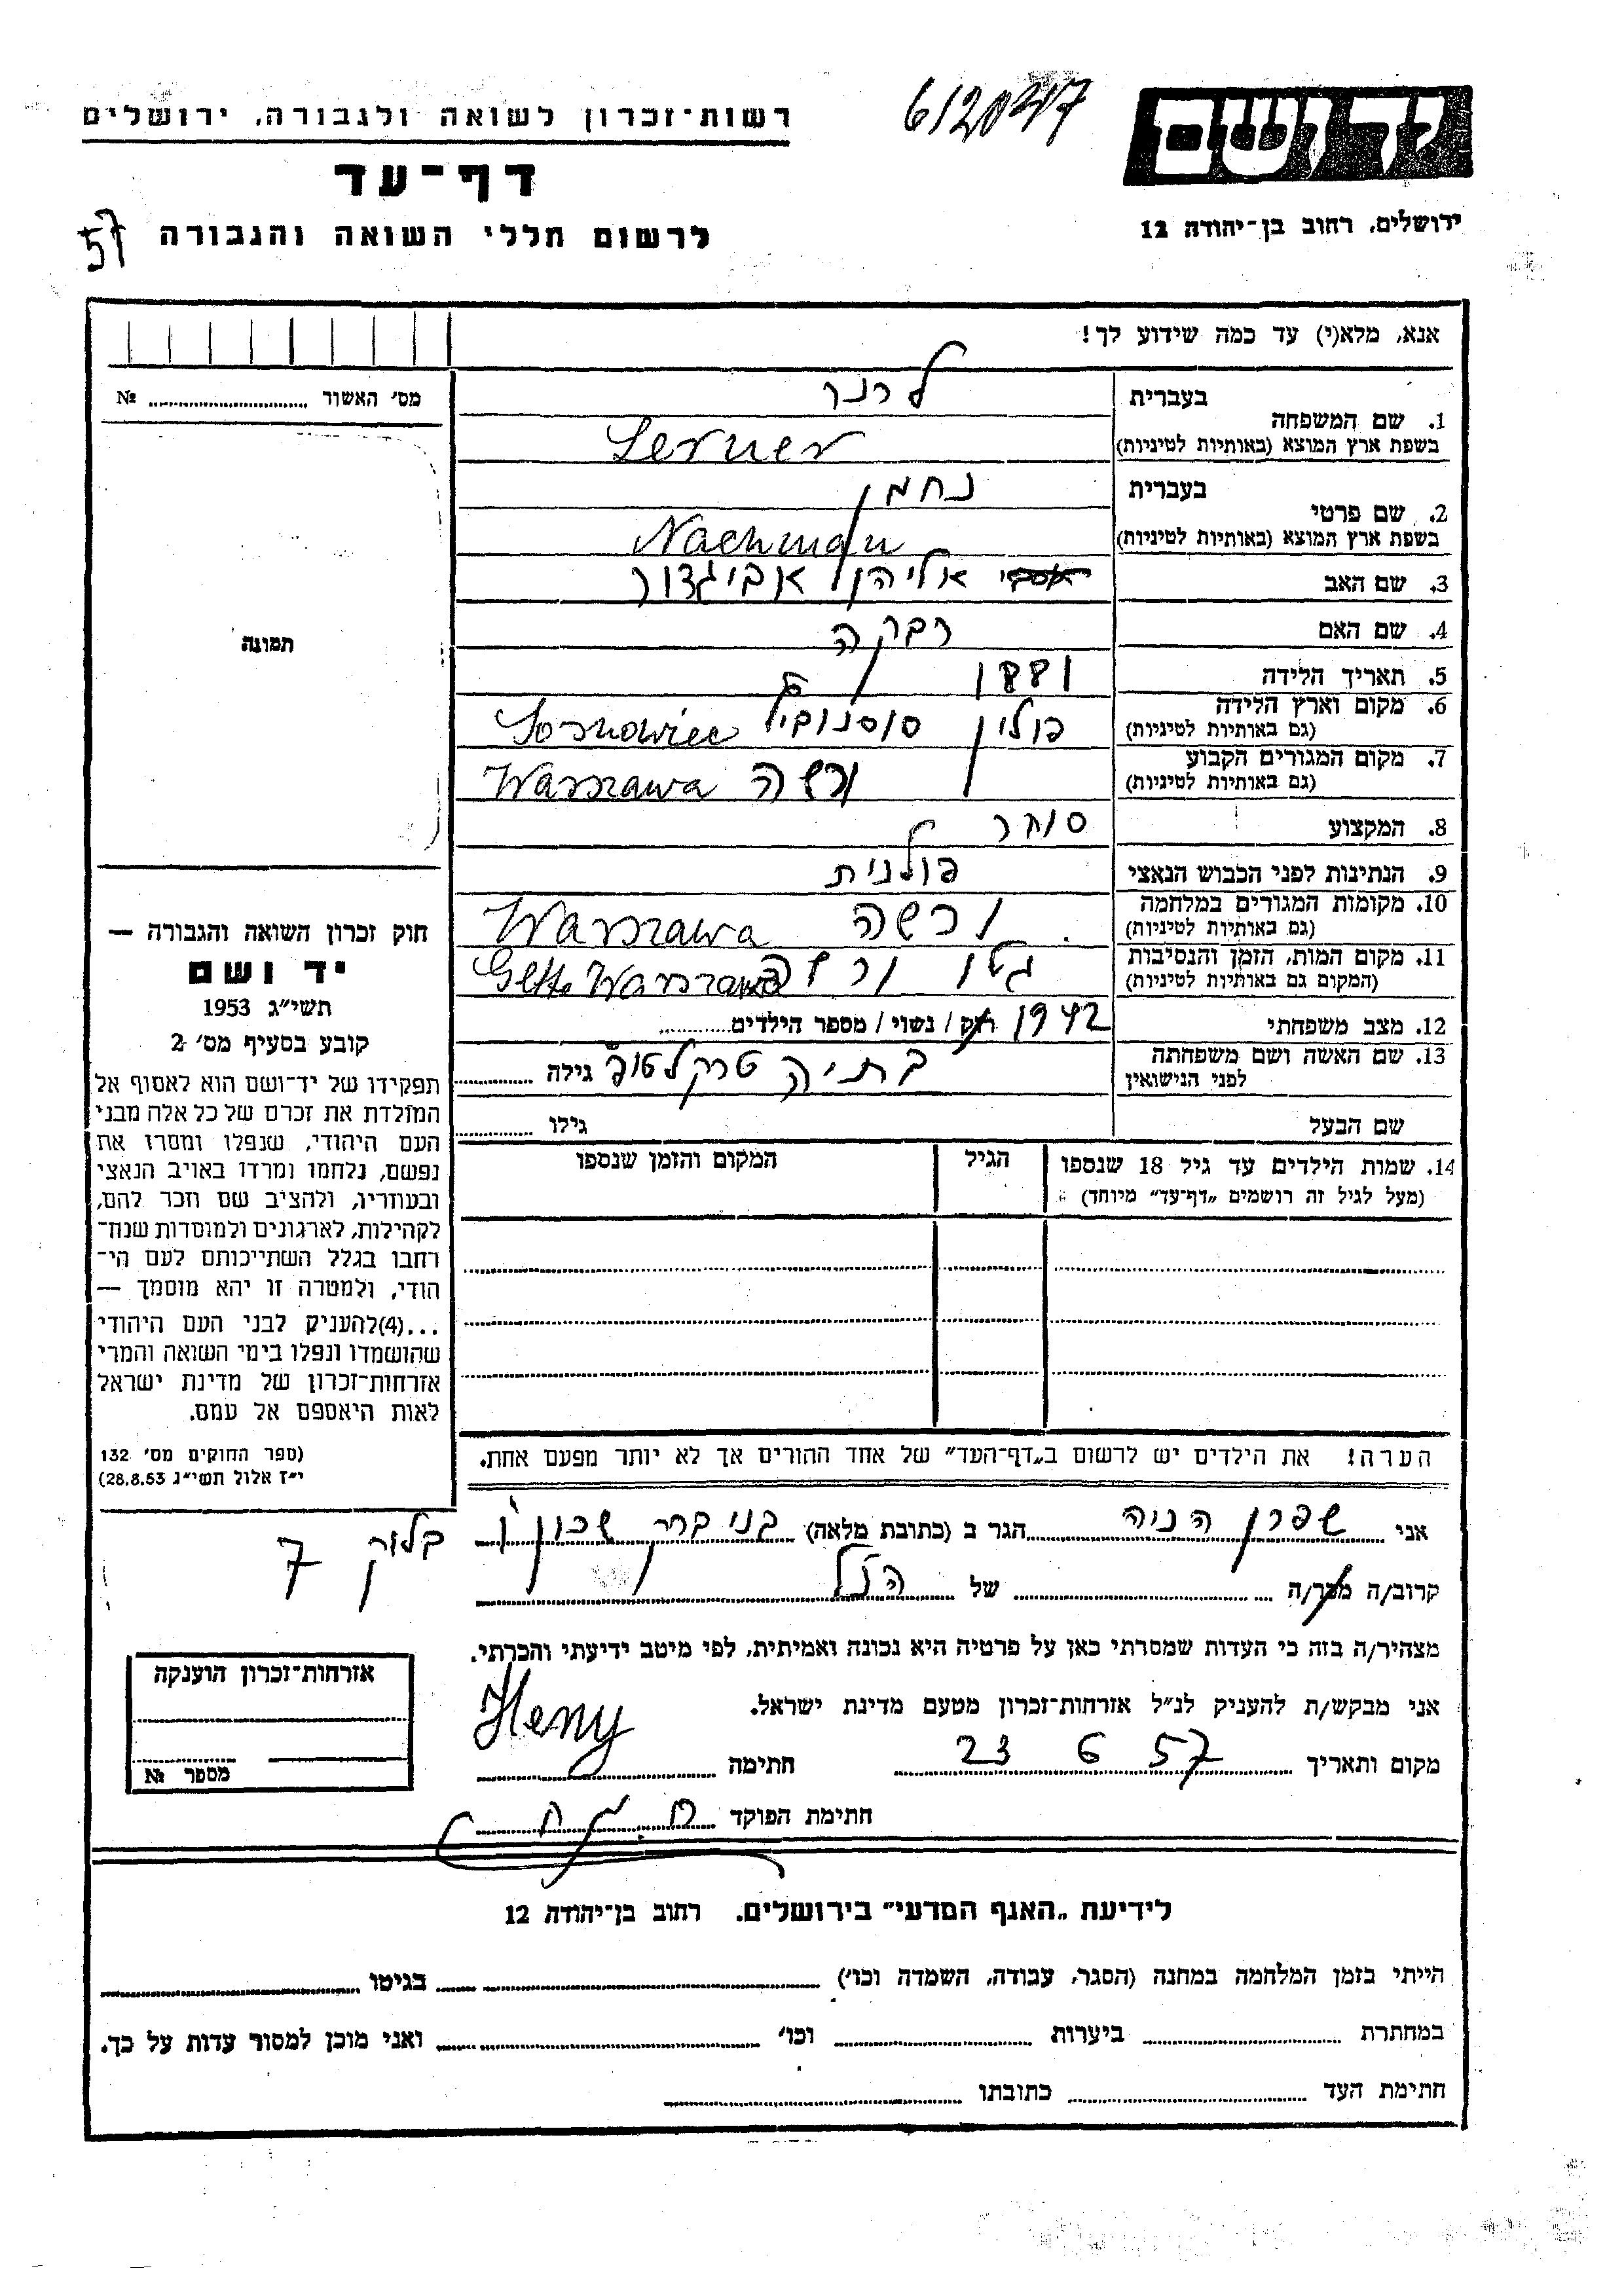 רשות־זכרון לשואה ולגבורה, ירושלים
6/20417
יד ושם
דף־עד
ירושלים, רחוב בן־יהודה 12
לרשום חללי השואה והגבורה
57
אנא, מלא(י) עד כמה שידוע לך!
מס׳ האשור № ..........
תמונה
1. שם המשפחה
בעברית
לרנר
בשפת ארץ המוצא (באותיות לטיניות)
Lerner
2. שם פרטי
בעברית
נחמן
בשפת ארץ המוצא (באותיות לטיניות)
Nachman
3. שם האב אליהו אביגדור
4. שם האם רבקה
5. תאריך הלידה 1881
6. מקום וארץ הלידה
(גם באותיות לטיניות)
פולין Sosnowiec
7. מקום המגורים הקבוע
(גם באותיות לטיניות)
ורשה Warszawa
8. המקצוע סוחר
9. הנתינות לפני הכבוש הנאצי פולנית
10. מקומות המגורים במלחמה
(גם באותיות לטיניות)
ורשה Warszawa
11. מקום המות, הזמן והנסיבות
(המקום גם באותיות לטיניות)
גטו ורשה Getto Warszawa
1942
12. מצב משפחתי רוק / נשוי / מספר הילדים ..........
13. שם האשה ושם משפחתה
לפני הנישואין
בתיה גילה ..........
שם הבעל גילו ..........
14. שמות הילדים עד גיל 18 שנספו
(מעל לגיל זה רושמים „דף־עד״ מיוחד)
הגיל
המקום והזמן שנספו
חוק זכרון השואה והגבורה —
יד ושם
תשי״ג 1953
קובע בסעיף מס׳ 2
תפקידו של יד־ושם הוא לאסוף אל
המולדת את זכרם של כל אלה מבני
העם היהודי, שנפלו ומסרו את
נפשם, נלחמו ומרדו באויב הנאצי
ובעוזריו, ולהציב שם וזכר להם,
לקהילות, לארגונים ולמוסדות שנח־
רבו בגלל השתייכותם לעם הי־
הודי, ולמטרה זו יהא מוסמך —
...(4)להעניק לבני העם היהודי
שהושמדו ונפלו בימי השואה והמרי
אזרחות־זכרון של מדינת ישראל
לאות היאספם אל עמם.
(ספר החוקים מס׳ 132
י״ז אלול תשי״ג 28.8.53)
הערה! את הילדים יש לרשום ב„דף־העד״ של אחד ההורים אך לא יותר מפעם אחת.
אני שפרן הניה הגר ב (כתובת מלאה) בני ברק שכון ו׳ בלוק 7
קרוב/ה מכר/ה .......... של הנ״ל
מצהיר/ה בזה כי העדות שמסרתי כאן על פרטיה היא נכונה ואמיתית, לפי מיטב ידיעתי והכרתי.
אני מבקש/ת להעניק לנ״ל אזרחות־זכרון מטעם מדינת ישראל.
מקום ותאריך 23 6 57 חתימה Heny
חתימת הפוקד
אזרחות־זכרון הוענקה
מספר №
לידיעת „האגף המדעי״ בירושלים, רחוב בן־יהודה 12
הייתי בזמן המלחמה במחנה (הסגר, עבודה, השמדה וכו׳) .......... בגיטו ..........
במחתרת .......... ביערות .......... וכו׳ .......... ואני מוכן למסור עדות על כך.
חתימת העד .......... כתובתו ..........